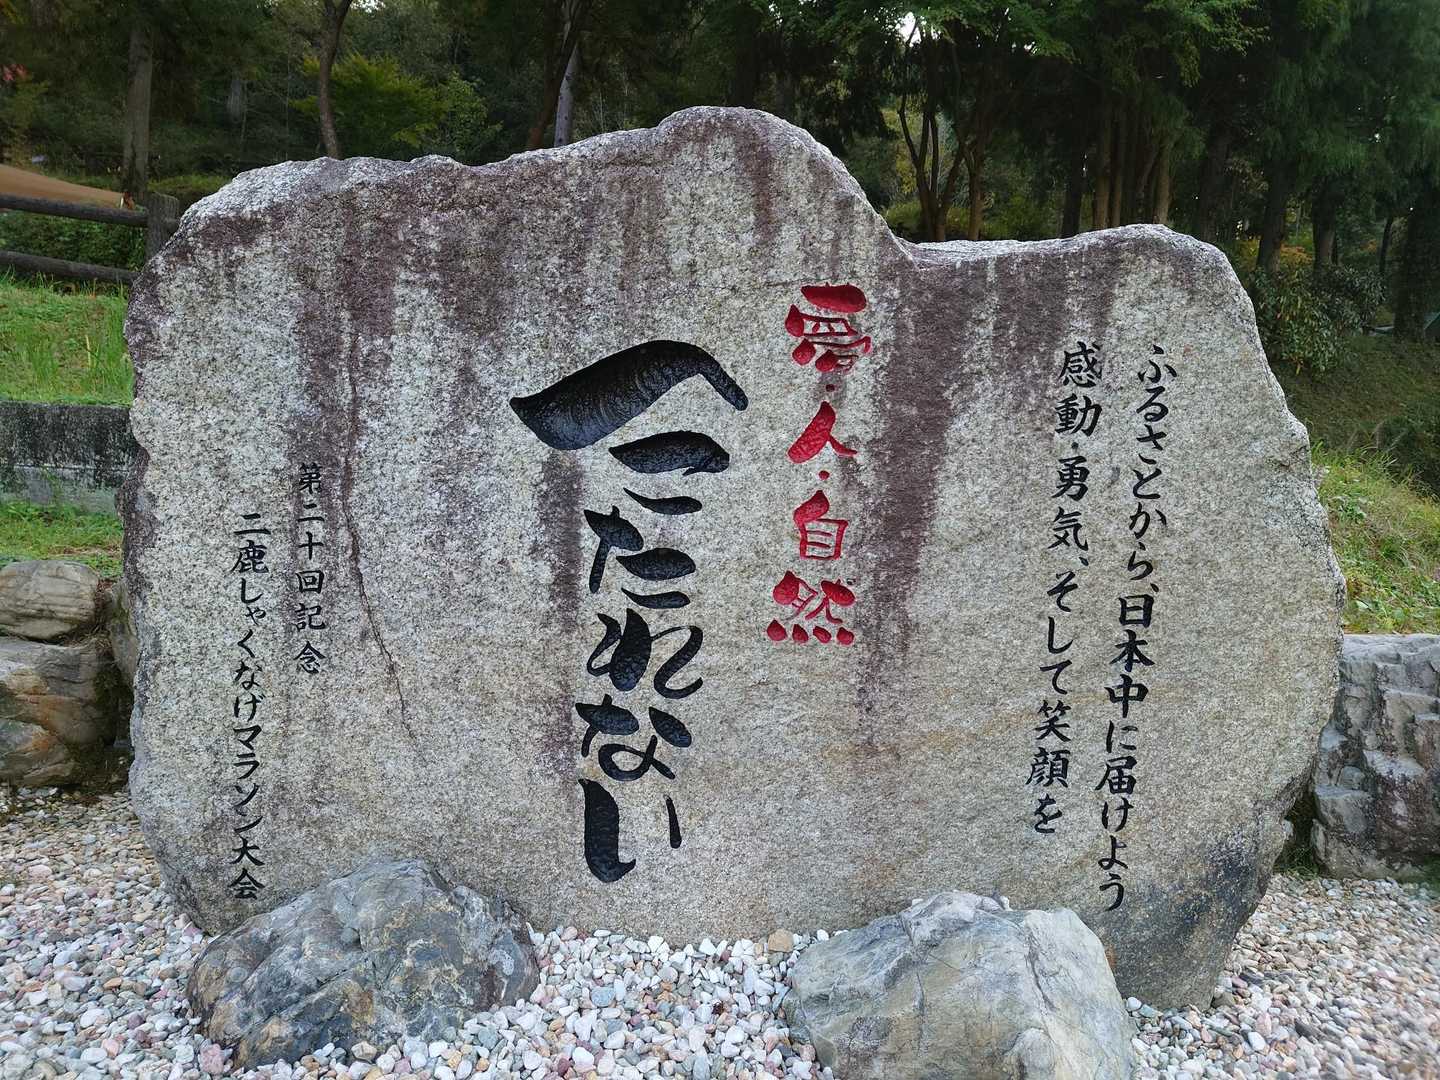 ふるさとから、日本中に届けよう
感動・勇気、そして笑顔を
愛・人・自然
へこたれない
第二十回記念
二鹿しゃくなげマラソン大会